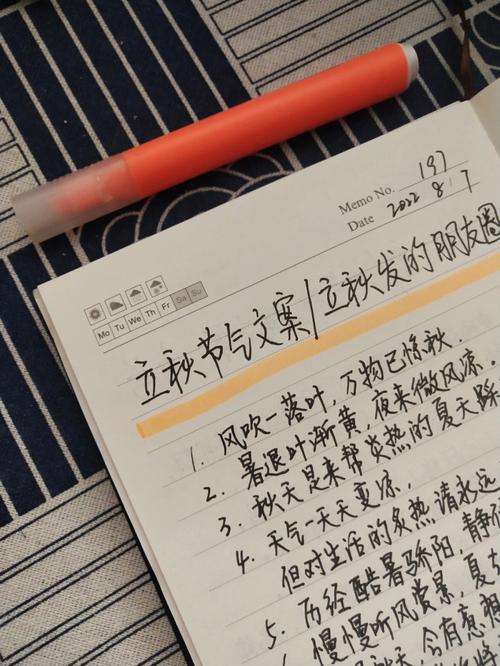 Memo No. 197
Date 2022 8 7
Mo Tu We Th Fr Sa Su
立秋节气文案/立秋发的朋友圈
1. 风吹一落叶，万物已惊秋.
2. 暑退叶渐黄，夜来微风凉，
3. 秋天是来帮炎热的夏天
4. 天气一天天变凉，
但对生活的炙热请永远
5. 历经酷暑骄阳，静
慢慢听风赏景，夏